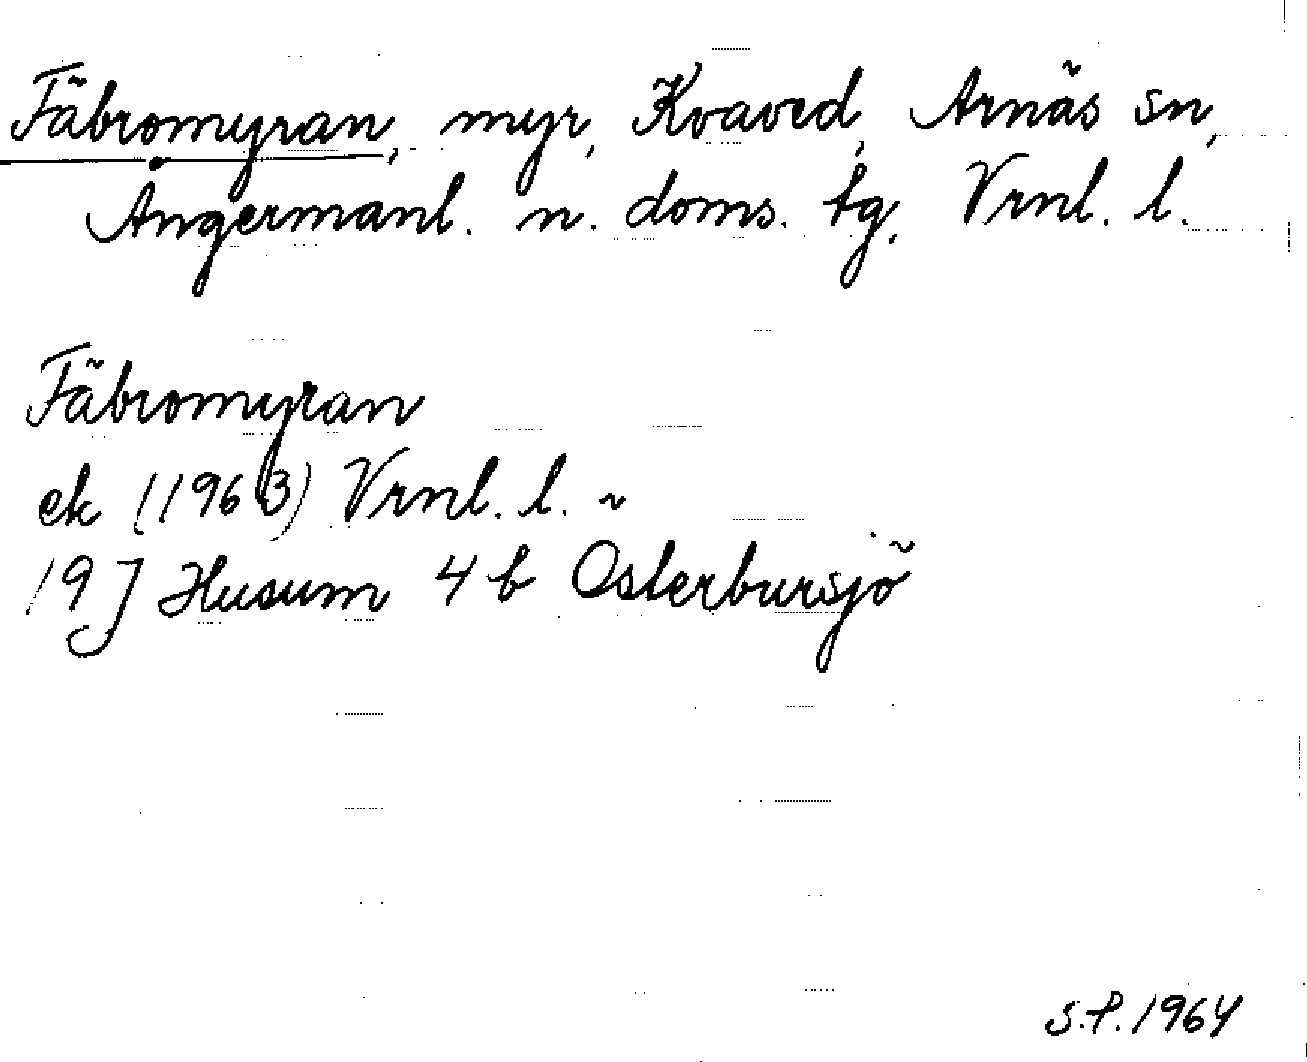 Fäbromyran, myr, Kvaved, Arnäs sn,
Ångermanl. n. doms. tg, Vrnl. l.
Fäbromyran
ek (1963) Vrnl. l.
19J Husum 4 b Österbursjö
S.P. 1964